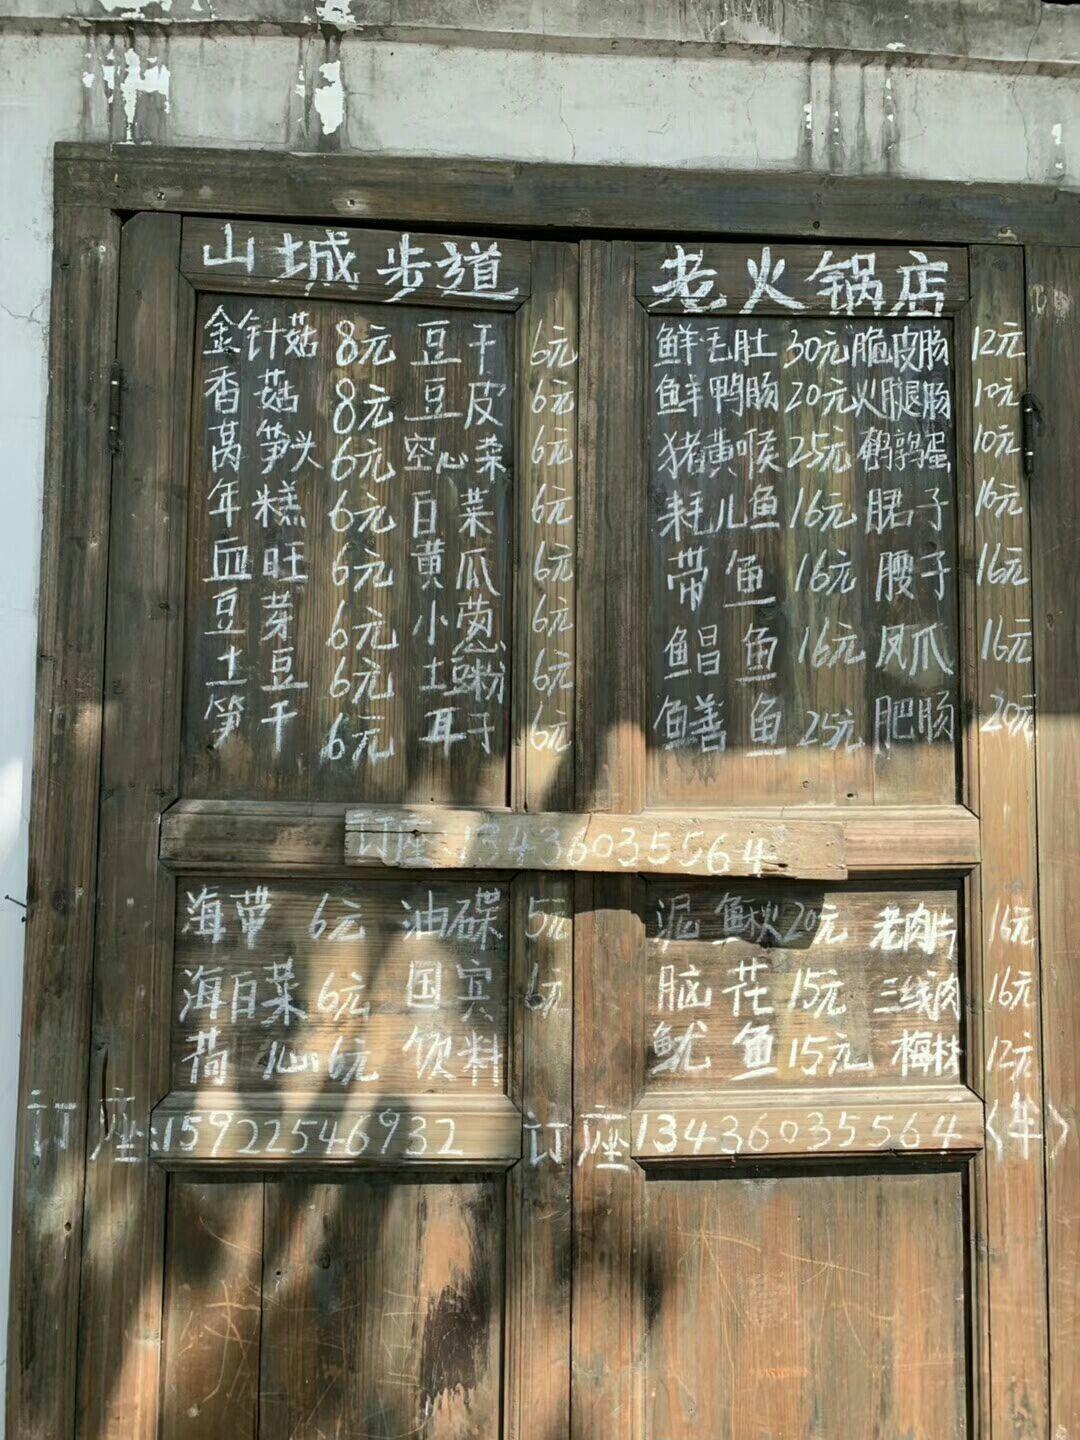 山城步道 老火锅店
金针菇 8元 豆干 6元 鲜毛肚 30元 脆皮肠 12元
香菇 8元 豆皮 6元 鲜鸭肠 20元 火腿肠 10元
莴笋头 6元 空心菜 6元 猪黄喉 25元 鹌鹑蛋 10元
年糕 6元 白菜 6元 耗儿鱼 16元 腒子 16元
血旺 6元 黄瓜 6元 带鱼 16元 腰子 16元
豆芽 6元 小葱 6元 鲳鱼 16元 凤爪 16元
土豆 6元 土豆粉 6元 鳝鱼 25元 肥肠 20元
笋干 6元 耳子 6元
订座:13436035564
海带 6元 油碟 5元 泥鳅 20元 老肉片 16元
海白菜 6元 国宾 6元 脑花 15元 三线肉 16元
荷心 6元 饮料 鱿鱼 15元 梅林 12元
订座:15922546932 订座13436035564 (牟)